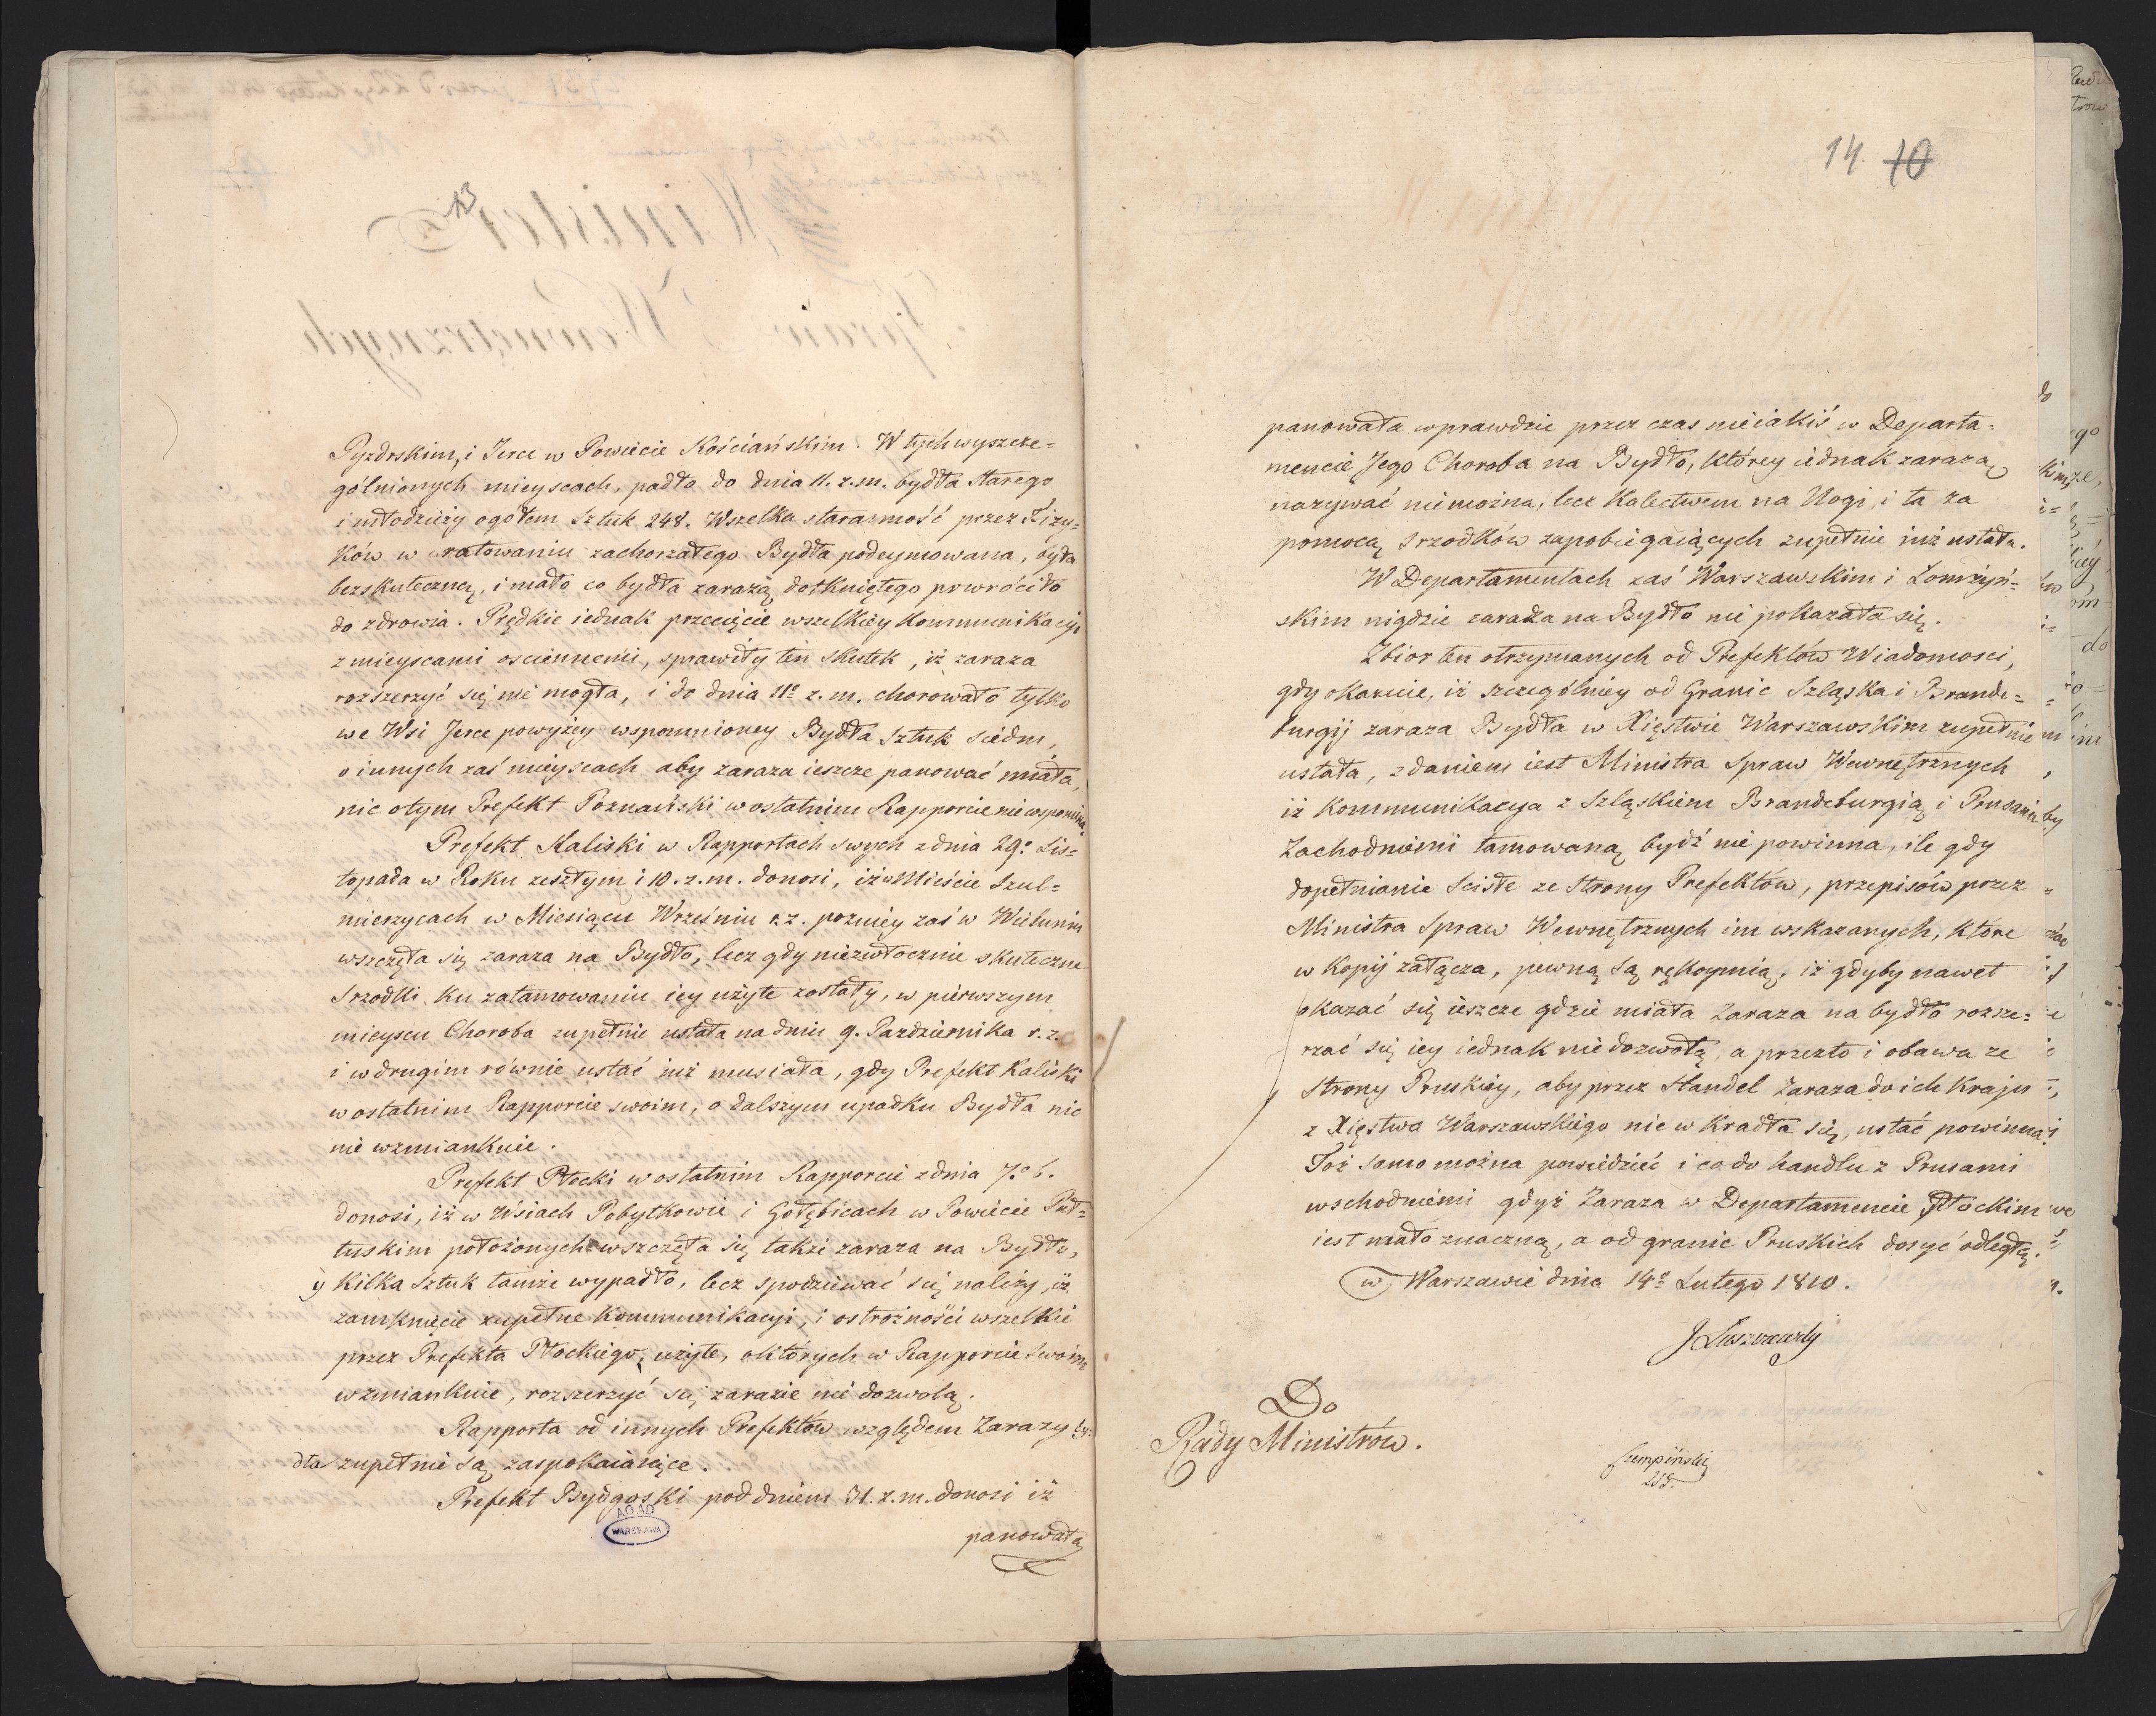 13
Pyzdrskim, i Jerce w Powiecie Kościańskim. W tych wyszcze=
gólnionych mieyscach, padło do dnia 11. z. m. bydła starego
i młodzieży ogółem Sztuk 248. Wszelka staranność przez Fizy=
ków w ratowaniu zachorzałego Bydła podeymowana, była
bezskuteczną, i mało co bydła zarazą dotkniętego powróciło
do zdrowia. Prędkie iednak przecięcie wszelkiey kommunikacyi
z mieyscami osciennemi, sprawiły ten skutek, iż zaraza
rozszerzyć się nie mogła, i do dnia 11º z. m. chorowało tylko
we Wsi Jerce powyżey wspomnioney Bydła Sztuk siedm,
o innych zaś mieyscach aby zaraza ieszcze panować miała,
nic o tym Prefekt Poznański w ostatnim Rapporcie nie wspomina,
Prefekt Kaliski w Rapportach swych z dnia 29º Lis=
topada w Roku zeszłym i 10. z. m. donosi, iż w Mieście Szul=
mierzycach w Miesiącu Wrześniu r. z. pozniéy zaś w Wieluniu
wszczęła się zaraza na Bydło, lecz gdy niezwłocznie skuteczne
srzodki ku zatamowaniu iey użyte zostały, w pierwszym
mieyscu Choroba zupełnie ustała na dniu 9. Pazdziernika r. z.
i w drugim równie ustać już musiała, gdy Prefekt Kaliski
w ostatnim Rapporcie swoim, o dalszym upadku Bydła nic
nie wzmiankuie.
Prefekt Płocki w ostatnim Rapporcie z dnia 7º b.
donosi, iż w Wsiach Pobyłkowie i Gołębicach w Powiecie Puł=
tuskim położonych wszczęła się także zaraza na Bydło,
y kilka sztuk tamże wypadło, lecz spodziewać się należy, iż
zamknięcie zupełne kommunikacyi, i ostrożności wszelkie
przez Prefekta Płockiego użyte, o których w Rapporcie swoim
wzmiankuie, rozszerzyć się zarazie nie dozwolą.
Rapporta od innych Prefektów względem Zarazy by=
dła zupełnie są zaspokaiaiące.
Prefekt Bydgoski pod dniem 31. z. m. donosi iż
panowała
AGAD
WARSZAWA
14. 10
panowała wprawdzie przez czas nieiakiś w Departa=
mencie Jego Choroba na Bydło, którey iednak zarazą
nazywać nie można, lecz Kalectwem na Nogi, i ta za
pomocą srzodków zapobiegaiących zupełnie iuż ustała.
W Departamentach zaś Warszawskim i Łomżyń=
skim nigdzie zaraza na Bydło nie pokazała się.
Zbior ten otrzymanych od Prefektów Wiadomosci,
gdy okazuie, iż szczególniey od Granic Szląska i Brande=
burgij zaraza Bydła w Xięstwie Warszawskim zupełnie
ustała, zdaniem iest Ministra Spraw Wewnętrznych
iż kommunikacya z Szląskiem Brandeburgią i Prusami
Zachodniemi tamowaną bydź nie powinna, ile gdy
dopełnianie ścisłe ze strony Prefektów, przepisów przez
Ministra Spraw Wewnętrznych im wskazanych, które
w Kopij załącza, pewną są rękoymią, iż gdyby nawet
okazać się ieszcze gdzie miała Zaraza na bydło rozsze=
rzać się iey iednak nie dozwolą, a przezto i obawa ze
strony Pruskiey, aby przez Handel Zaraza do ich Kraju
z Xięstwa Warszawskiego nie wkradła się, ustać powinna.
Toż samo można powiedzieć i co do handlu z Prusami
wschodniemi gdyż Zaraza w Departamencie Płockim
iest mało znaczną, a od granic Pruskich dosyć odległą.
w Warszawie dnia 14º Lutego 1810.
J Łuszczewsky
Do
Rady Ministrów.
Szempiński